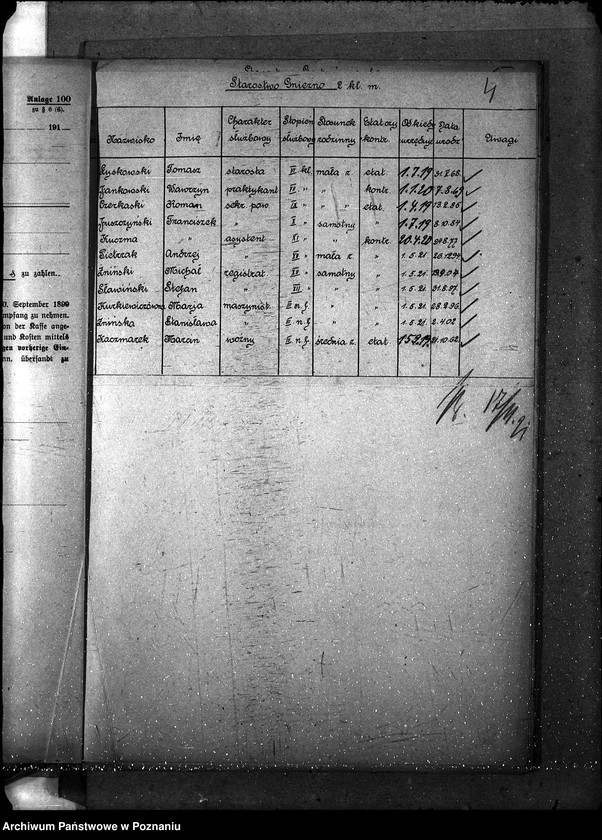 Anlage 100
zu § 6 (6).
191
zu zahlen.
0. September 1899
mpfang zu nehmen.
on der Kasse ange-
und Kosten mittels
gen vorherige Ein-
nn, übersandt zu
4
Starostwo Gniezno 2 kl. m.
Nazwisko Imię Charakter służbowy Stopień służbowy Stosunek rodzinny Etatowy kontr. Od kiedy urzęduje Data urodz. Uwagi
Ryskowski Tomasz starosta kl. mała r. etat. 1.7.19
Jankowski Wawrzyn praktykant " " kontr. 1.1.20
Roman sekr. pow. " " " etat. 1.4.19
Franciszek " " samotny " 1.7.19 8.10.64
Kuczma " asystent " " kontr. 20.4.20
Pietrzak Andrzej " " mała r. " 1.5.21
Żniński Michał registrat. " samotny " 1.5.21
Sławiński Stefan " " " " 1.5.21
Kurkiewiczówna Marja maszynist. n.f. " " 1.5.21
Żnińska Stanisława " n.f. " " 1.5.21 2.4.02
Kaczmarek woźny n.f. średnia r. etat.
Archiwum Państwowe w Poznaniu